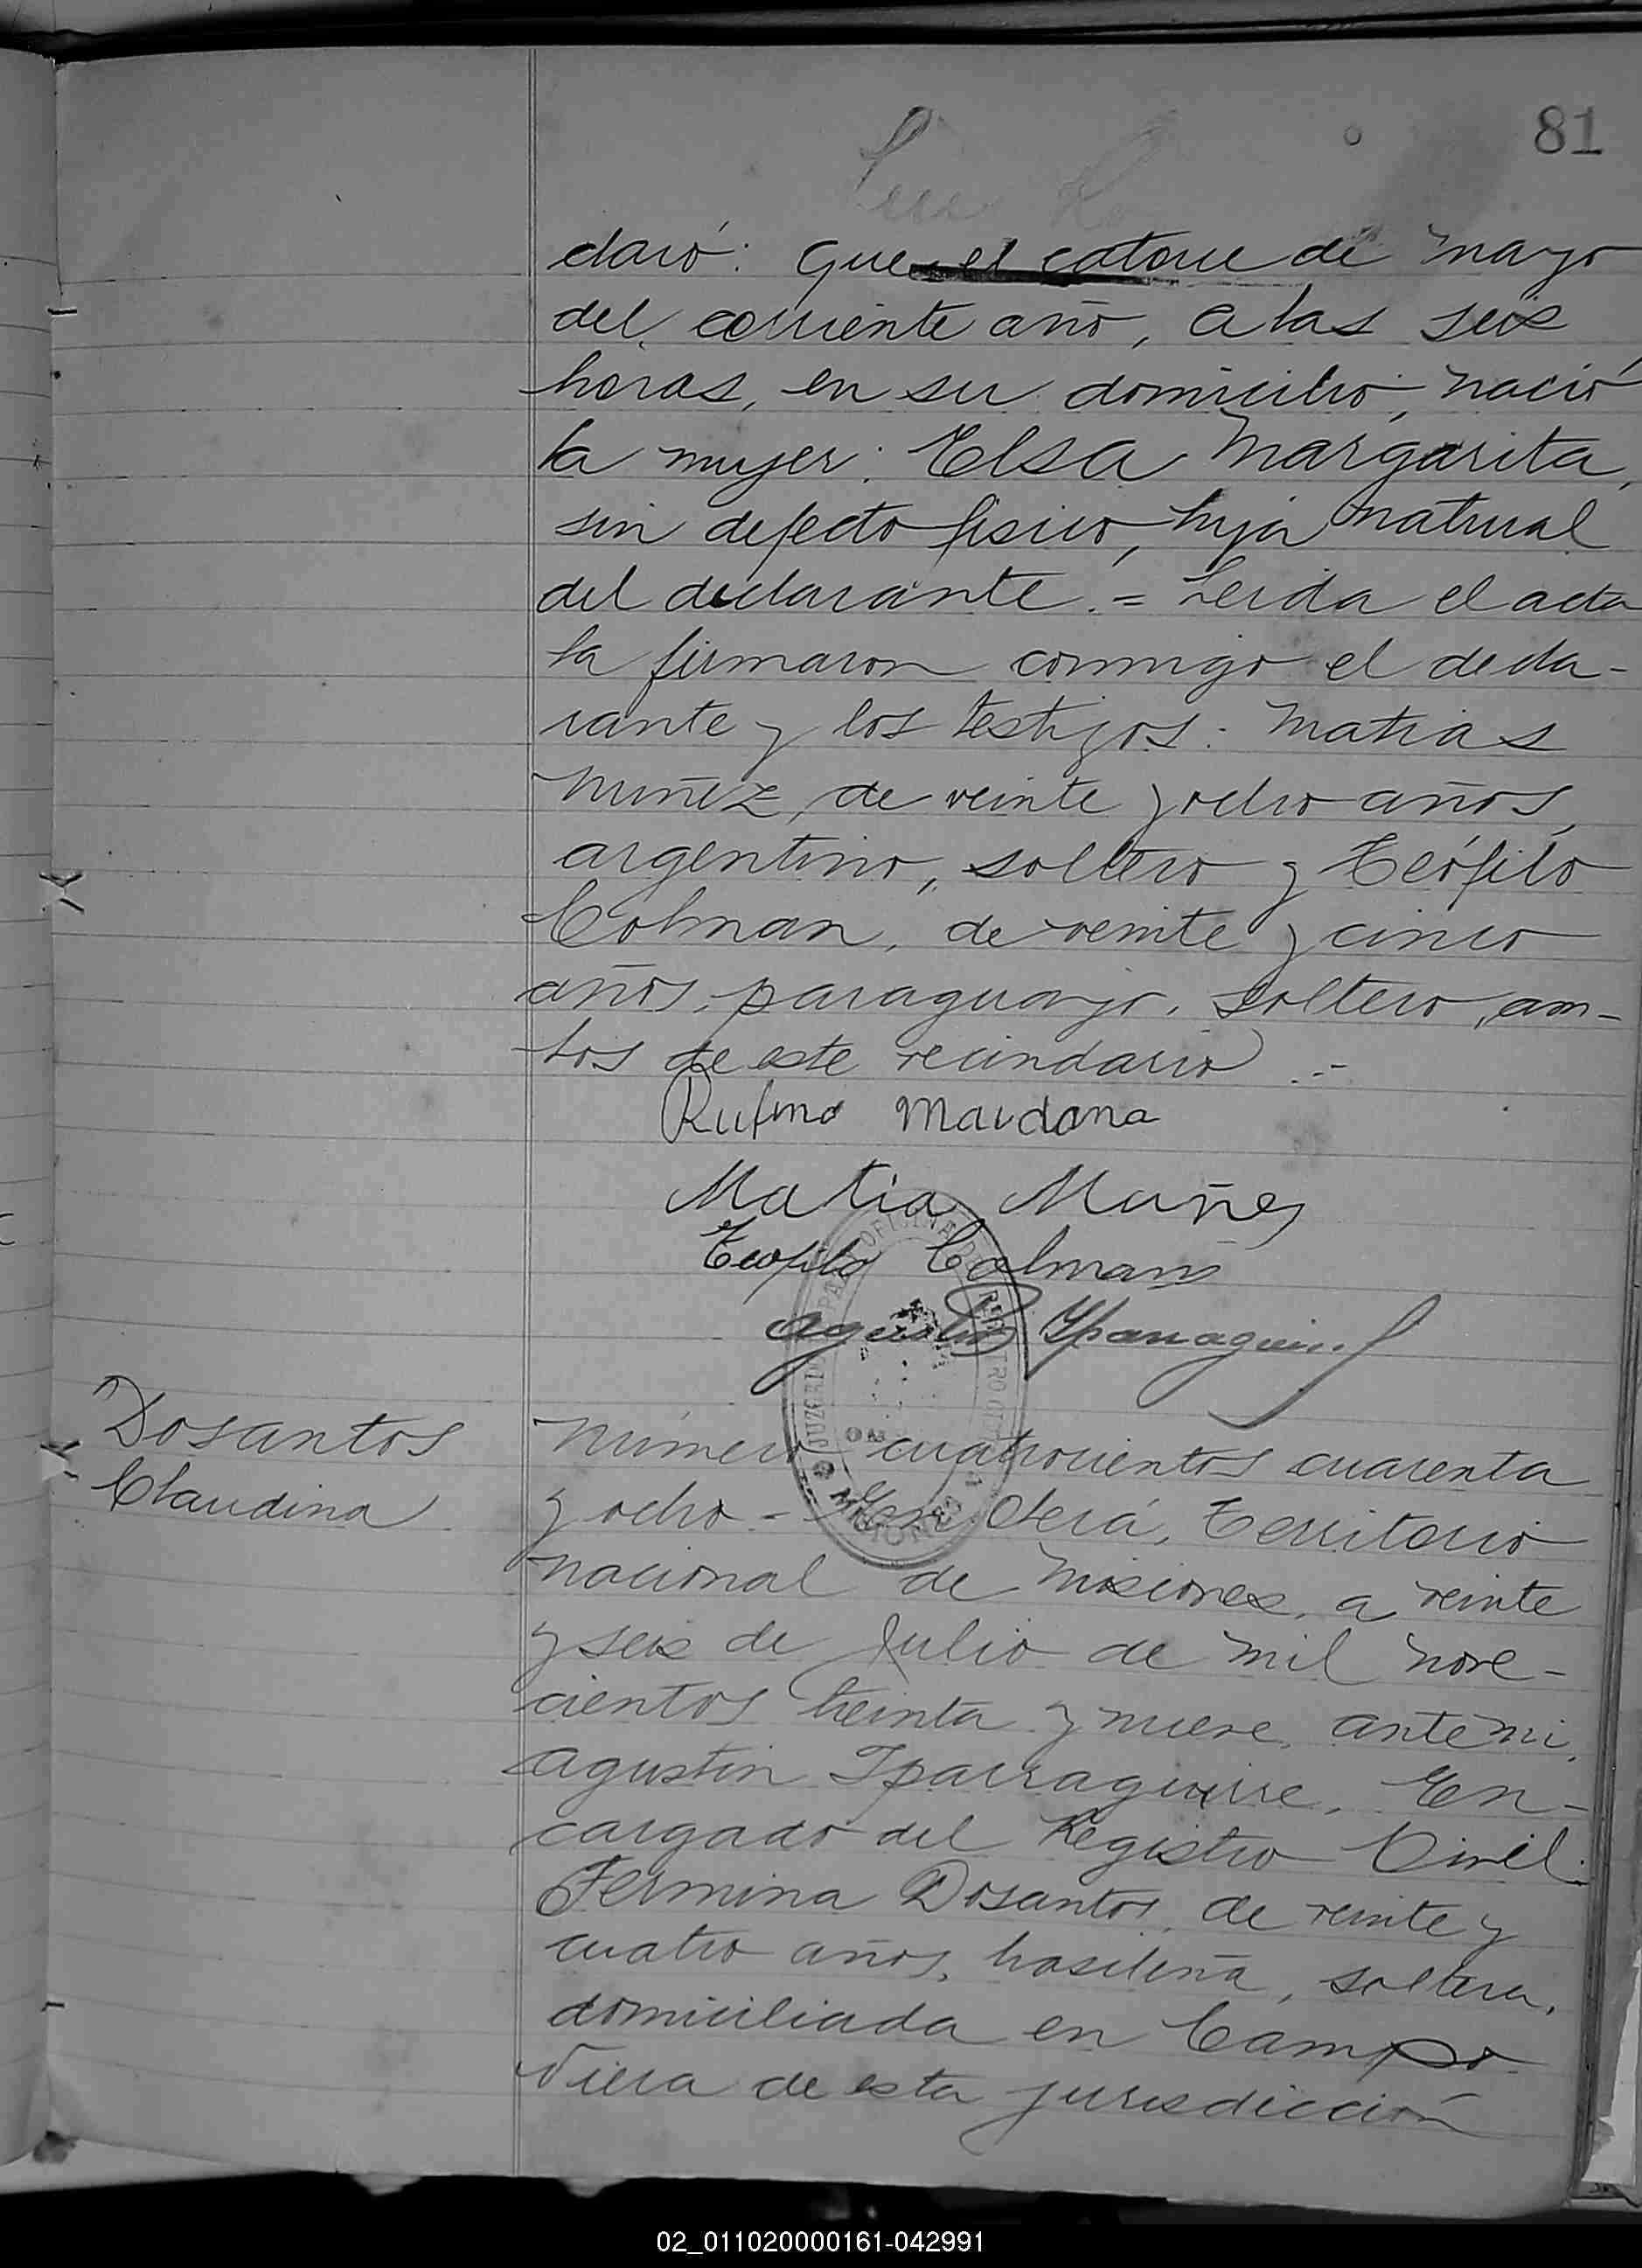 81
claró: Que el catorce de mayo
del corriente año, a las seis
horas, en su domicilio, nació
la mujer: Elsa Margarita,
sin defecto fisico, hija natural
del declarante.= Leida el acta
la firmaron conmigo el decla-
rante y los testigos: Matias
Nuñez, de veinte y ocho años,
argentino, soltero y Teófilo
Colman, de veinte y cinco
años, paraguayo, soltero, am-
bos de este vecindario.-
Rufino Mardona
Matia Nuñes
Teofilo Colman
Agustin Yparraguirre
Dosantos
Claudina
Número cuatrocientos cuarenta
y ocho - En Oberá, Territorio
nacional de Misiones, a veinte
y seis de Julio de mil nove-
cientos treinta y nueve, ante mi,
Agustin Iparraguirre, En-
cargado del Registro Civil.
Fermina Dosantos, de veinte y
cuatro años, brasileña, soltera,
domiciliada en Campo
Viera de esta jurisdicción
02_011020000161-042991